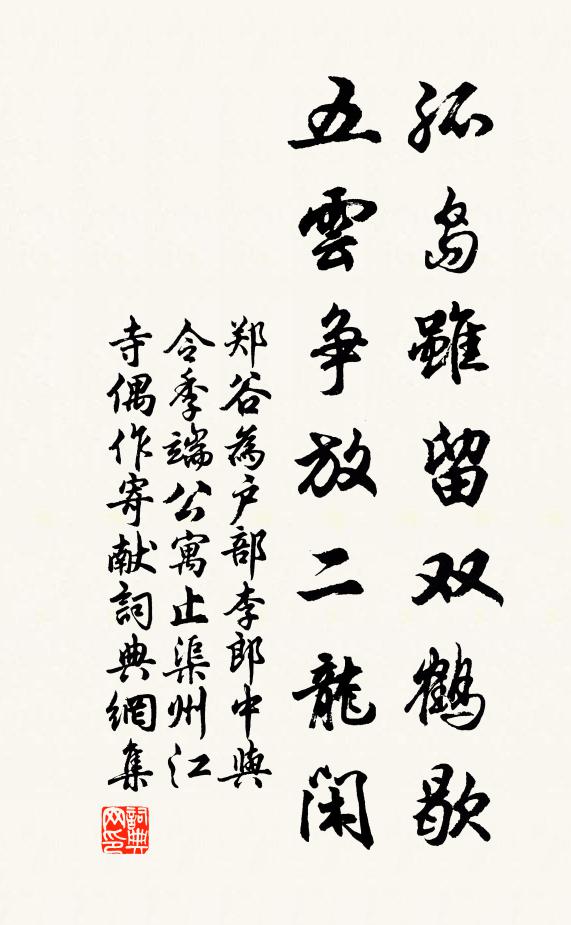 孤島雖留双鶴歇
五雲争放二龍閑
郑谷為户部李郎中與
令季端公寓止渠州江
寺偶作寄献詞典網集
詞典
网印